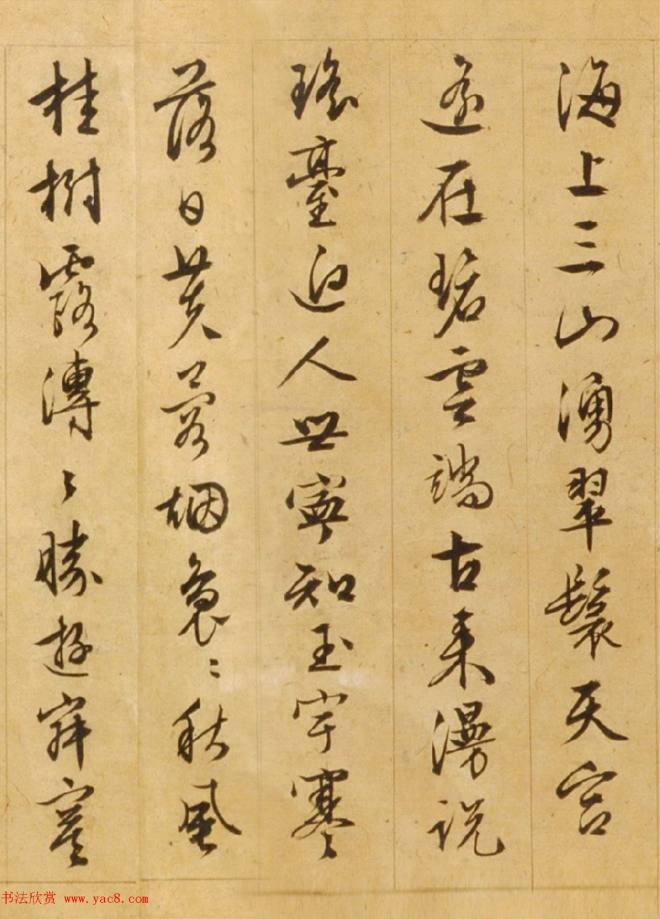 海上三山湧翠鬟天宫
遥在碧雲端古来漫説
瑶臺迥人世寧知玉宇寒
落日芙蓉烟裊〻秋風
桂樹露漙〻勝遊寂寞
书法欣赏 www.yac8.com